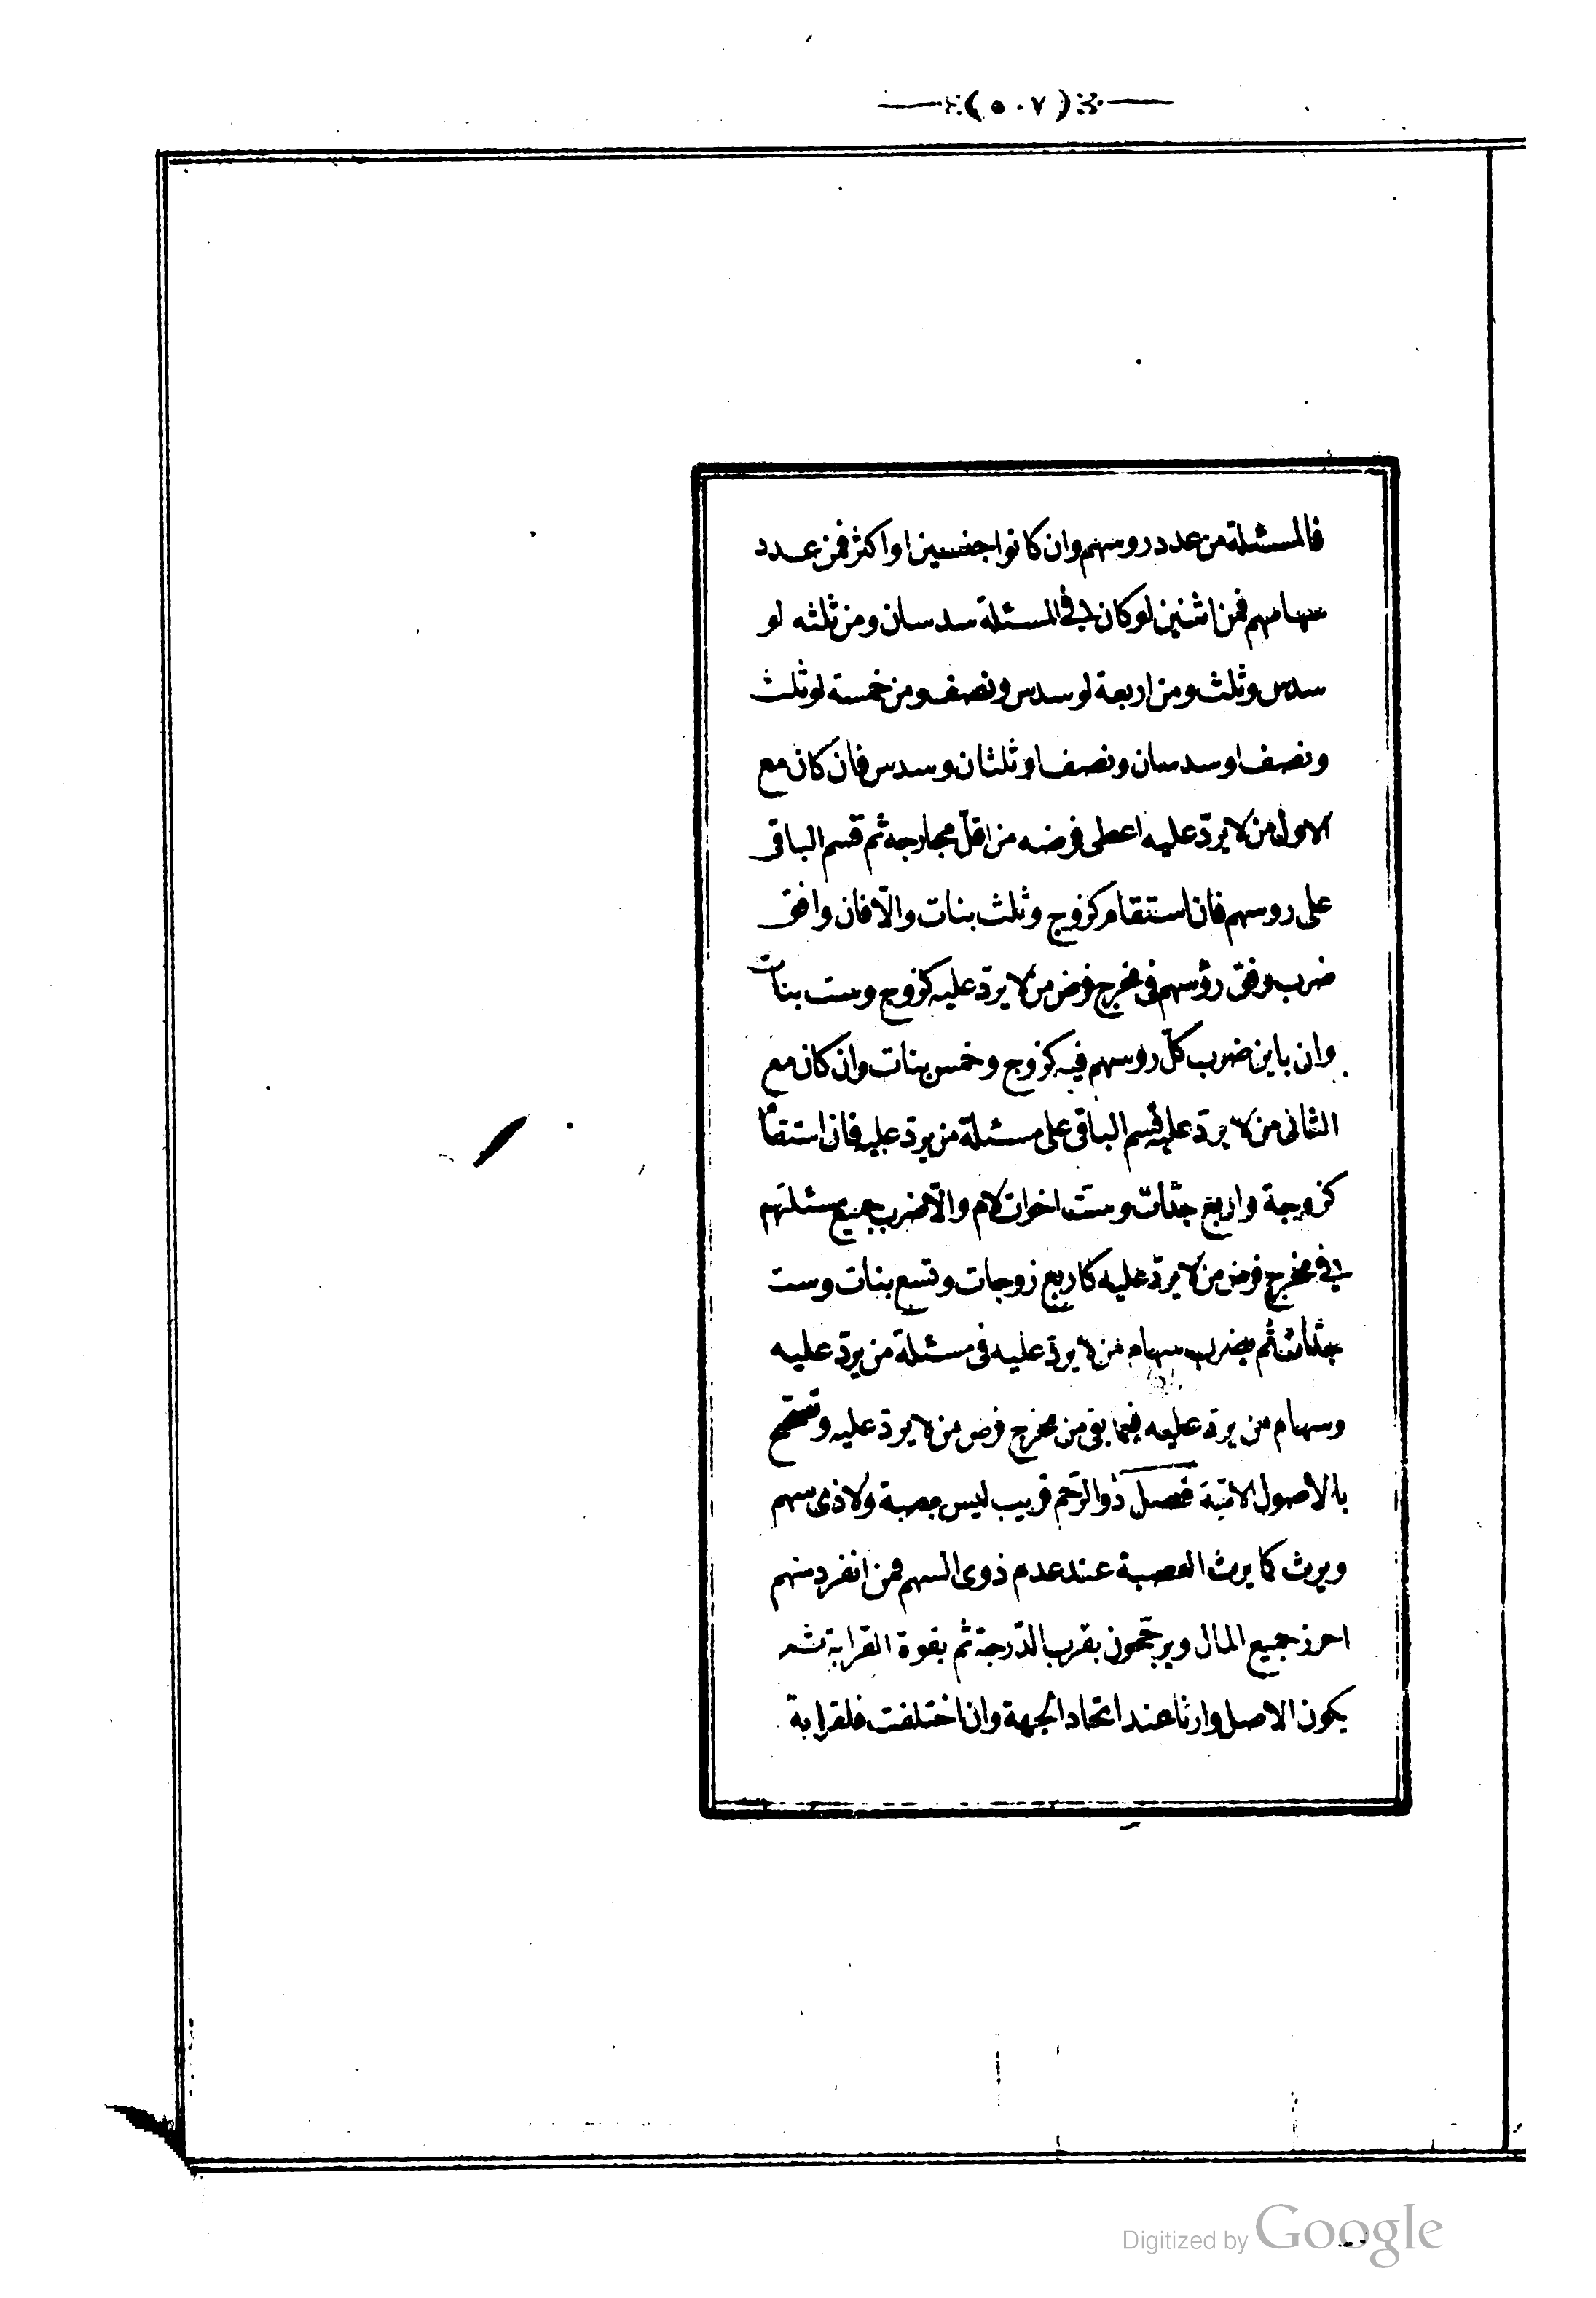 (٥٠٧)
فالمسئلة من عدد روسهم وان كانوا جنسين او اكثر فمن عدد
سهامهم فمن اثنين لو كان في المسئلة سدسان ومن ثلثه لو
سدس وثلث ومن اربعة لو سدس ونصف ومن خمسة لو ثلث
ونصف او سدسان ونصف او ثلثان وسدس فان كان مع
الاول من لا يردّ عليه اعطى فرضه من اقلّ مخارجه ثم قسم الباقى
على روسهم فان استقام كزوج وثلث بنات والّا فان وافق
ضرب وفق رؤسهم فى مخرج فرض من لا يردّ عليه كزوج وست بنات
وان باين ضرب كلّ روسهم فيه كزوج وخمس بنات وان كان مع
الثانى من لا يردّ عليه قسم الباقى على مسئلة من يردّ عليه فان استقام
كزوجة واربع جدّات وستّ اخوات لام والّا ضرب جميع مسئلتهم
في مخرج فرض من لا يردّ عليه كاربع زوجات وتسع بنات وست
جدّات ثم يضرب سهام من لا يردّ عليه فى مسئلة من يردّ عليه
وسهام من يردّ عليه فيما بقى من مخرج فرض من لا يردّ عليه وتصحّح
بالاصول الاتية فصل ذو الرّحم قريب ليس بعصبة ولا ذى سهم
ويرث كما يرث العصبة عند عدم ذوى السهم فمن انفرد منهم
احرز جميع المال ويرجّحون بقرب الدّرجة ثم بقوة القرابة ثم
بكون الاصل وارثا عند اتحاد الجهة وان اختلفت فلقرابة
Digitized by Google